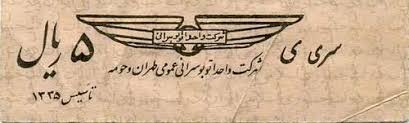 سری ی
شرکت واحد اتوبوسرانی
۵ ریال
شرکت واحد اتوبوسرانی عمومی طهران و حومه
تاسیس ۱۳۳۵